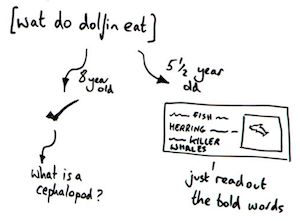 [wat do dolfin eat]
8 year
old
5 1/2 year
old
FISH
HERRING
KILLER
WHALES
What is a
cephalopod?
just read out
the bold words